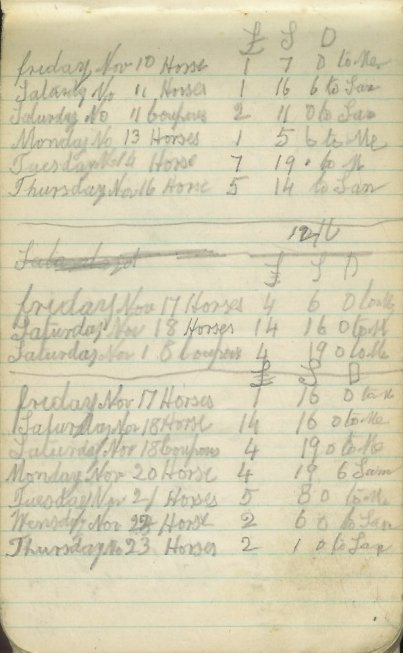 £ S D
friday Nov 10 Horse 1 7 0 to Me
Satarday No 11 Horses 1 16 6 to Sam
Saturday No 11 Coupons 2 11 0 to Sam
Monday No 13 Horses 1 5 6 to Me
Tuesday Nov 14 Horse 7 19 • to M
Thursday Nov 16 Horse 5 14 to Sam
£ S D
friday Nov 17 Horses 4 6 0 to Me
Saturday Nov 18 Horses 14 16 0 to M
Saturday Nov 18 Coupons 4 19 0 to Me
£ S D
friday Nov 17 Horses 1 16 0 to
Saturday Nov 18 Horse 14 16 0 to Me
Saturday Nov 18 Coupons 4 19 0 to Me
Monday Nov 20 Horse 4 19 6 Sam
Tuesday Nov 21 Horses 5 8 0 to Me
Wensday Nov 22 Horse 2 6 0 to Sam
Thursday No 23 Horses 2 1 0 to Sam